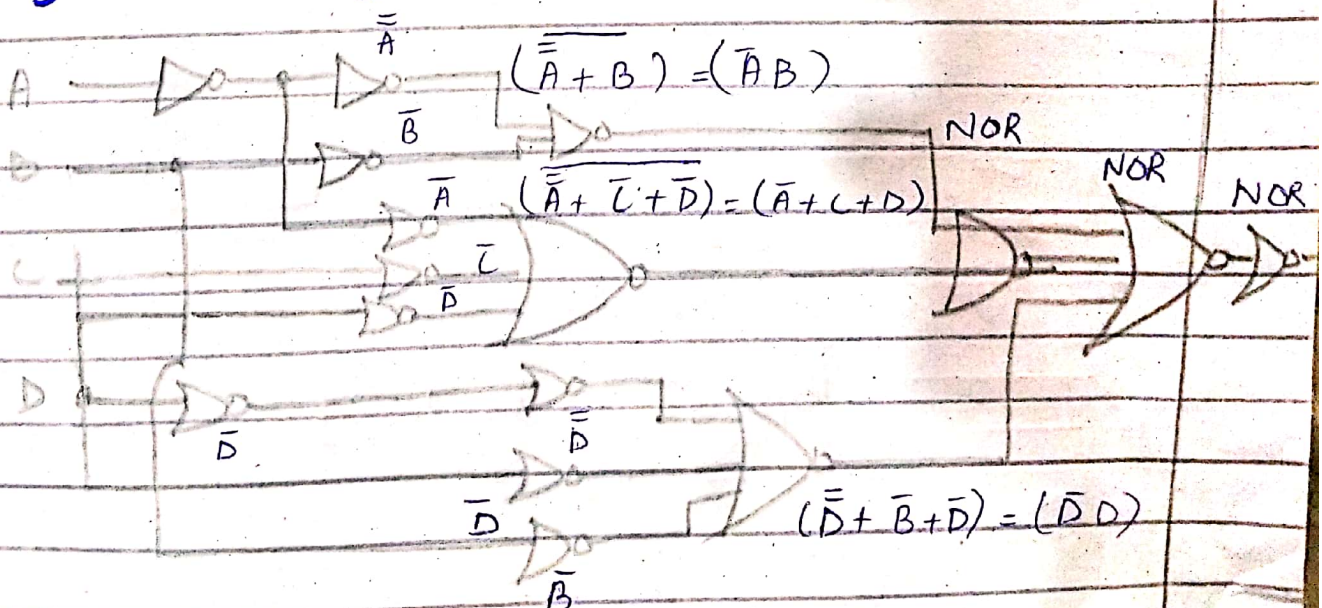 A̿
A
(A̿ + B) = (A̅ B)
B̅
NOR
B
NOR
A̅
(A̿ + C̅ + D̅) = (A̅ + C + D)
NOR
C
C̅
D̅
D
D̅
D̿
D̅
(D̿ + B̅ + D̅) = (D̅ D)
B̅